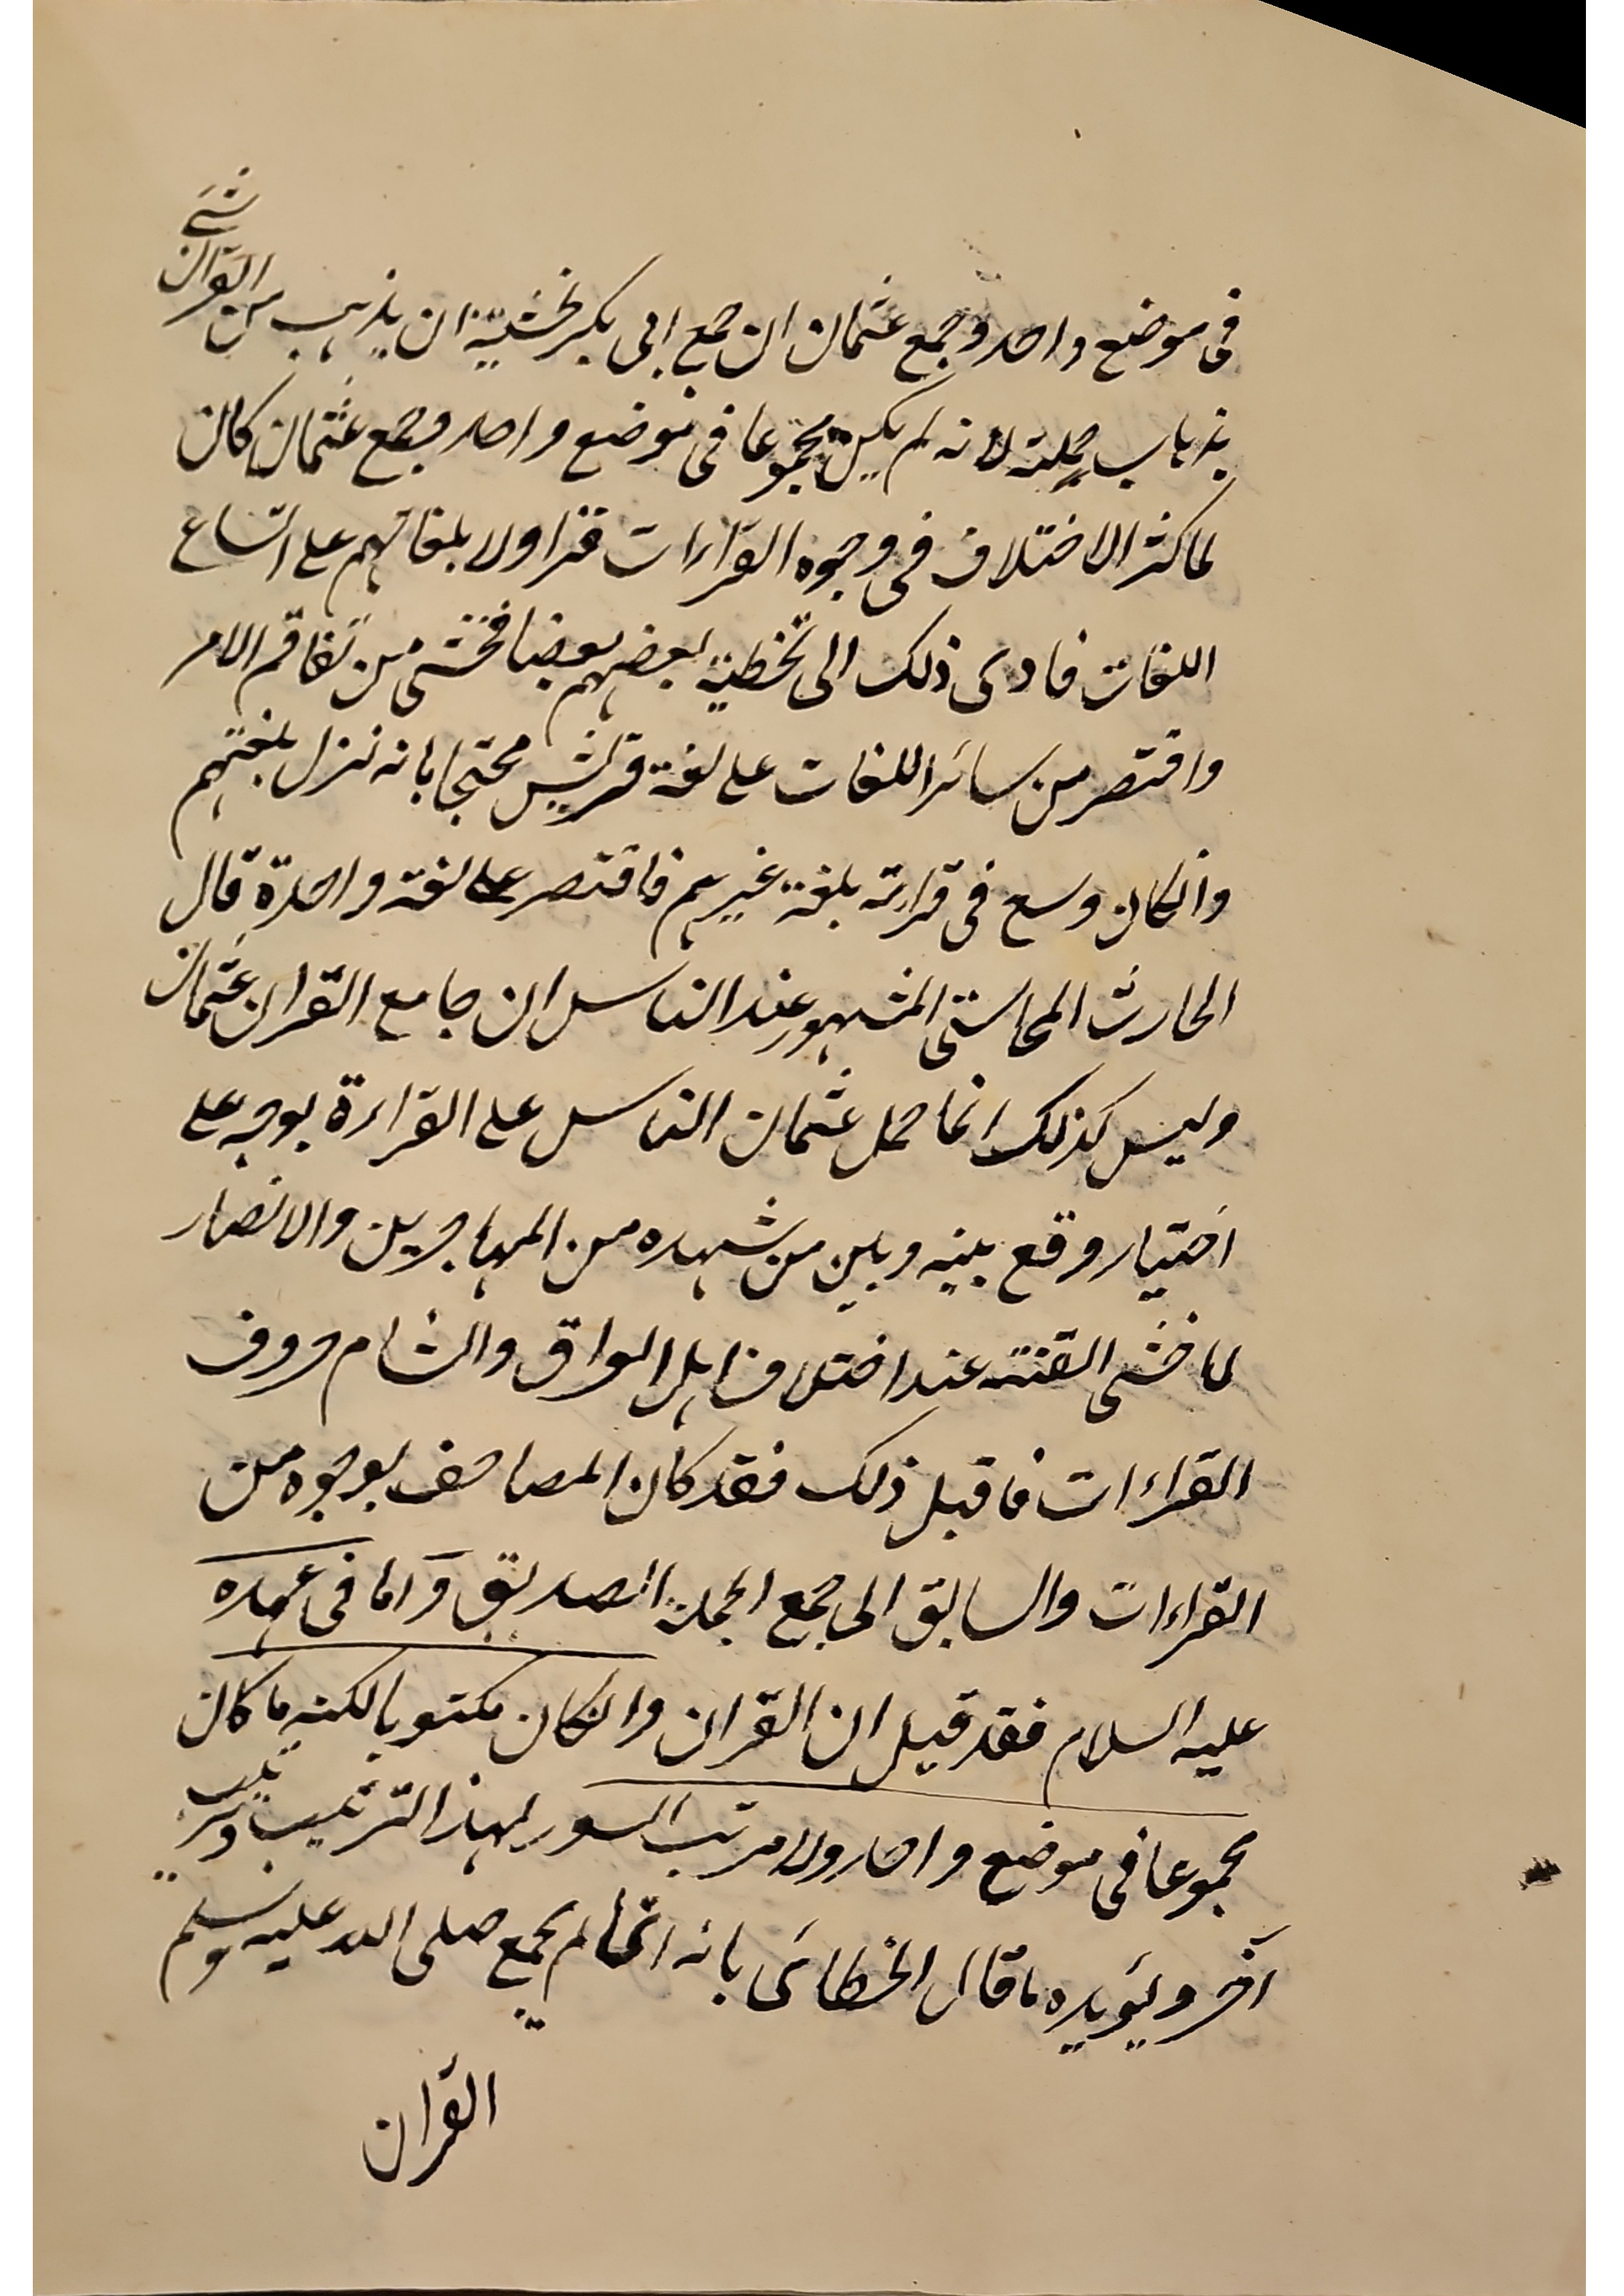 فى موضع واحد وجمع عثمان ان جمع ابى بكر لخشية ان يذهب من القرآن شئ
بذهاب جملته لانه لم يكن مجموعا فى موضع واحد وجمع عثمان كان
لما كثر الاختلاف فى وجوه القراءات فقرأوه بلغاتهم على اتساع
اللغات فادى ذلك الى تخطية بعضهم بعضا فخشى من تفاقم الامر
واقتصر من سائر اللغات على لغة قريش محتجا بانه نزل بلغتهم
وانكان وسع فى قراءته بلغة غيرهم فاقتصر على لغة واحدة قال
الحارث المحاسبى المشهور عند الناس ان جامع القران عثمان
وليس كذلك انما حمل عثمان الناس على القراءة بوجه على
اختيار وقع بينه وبين من شهده من المهاجرين والانصار
لما خشى الفتنة عند اختلاف اهل العراق والشام حروف
القراءات فاقبل ذلك فقد كان المصاحف بوجوه من
القراءات والسابق الى جمع الجملة الصديق واما فى عهده
عليه السلام فقد قيل ان القران وانكان مكتوبا لكنه ما كان
مجموعا فى موضع واحد ولا مرتب السور لهذا الترتيب وترتيب
آخر ويؤيده ما قال الخطائى بانه انما لم يجمع صلى الله عليه وسلم
القرآن